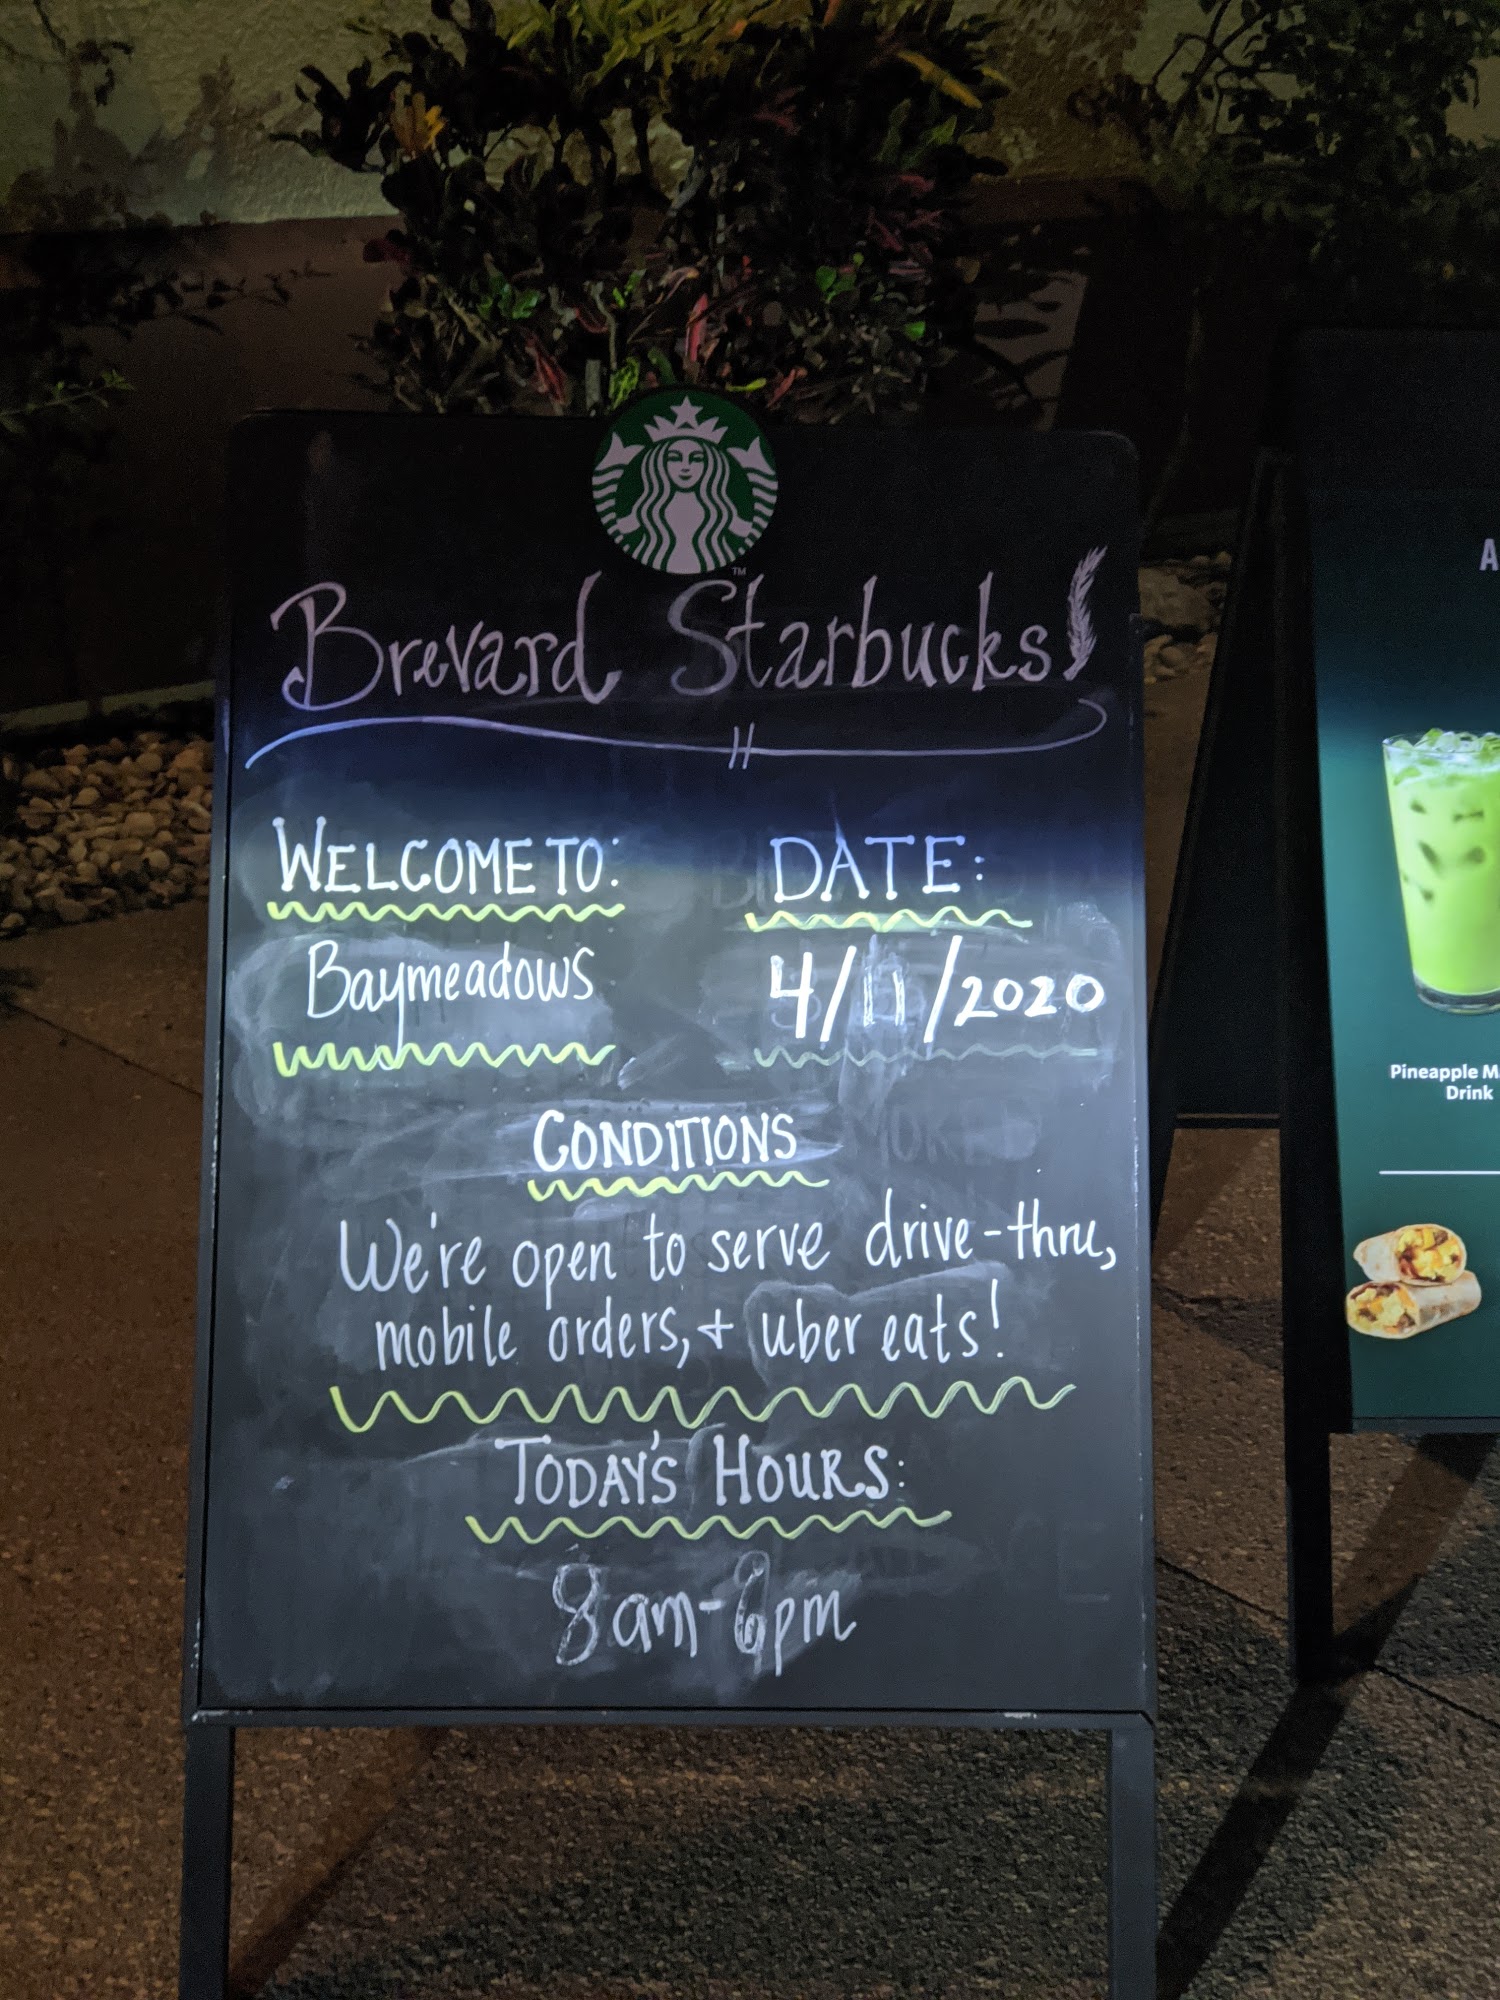 ™
Brevard Starbucks!
WELCOME TO:
DATE:
Baymeadows
4/11/2020
CONDITIONS
We're open to serve drive-thru,
mobile orders, + uber eats!
TODAY'S HOURS:
8am-6pm
A
Pineapple Ma
Drink